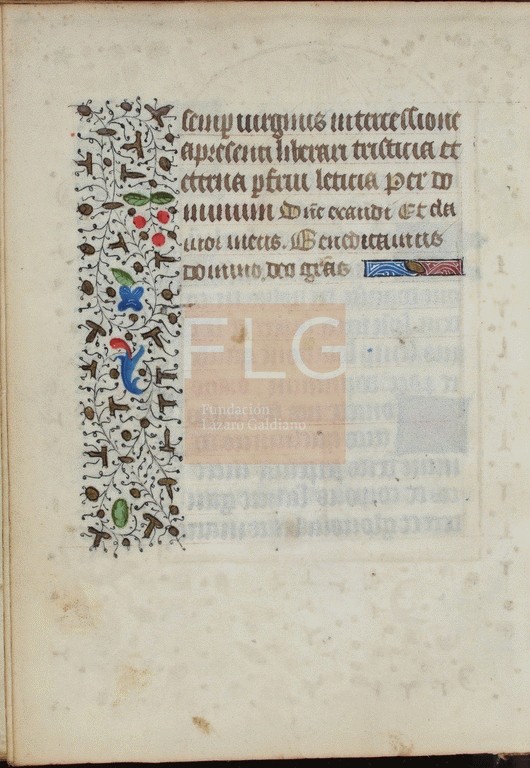 semp uirginis intercessione
a presenti liberari tristicia et
eterna pfrui leticia Per do
minum Dne exaudi Et cla
mor meus. Benedicamus
domino. deo gras
FLG
Fundación
Lázaro Galdiano